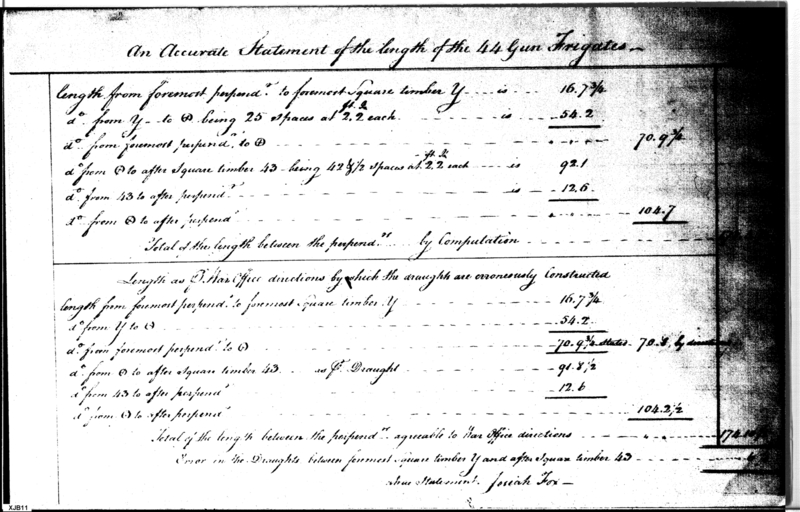 An Accurate Statement of the length of the 44 Gun Frigates
length from foremost perpendr. to foremost Square timber Y is 16.7¾
do. from Y to ⊕ being 25 spaces at 2.2 each is 54.2
do. from foremost perpendr. to ⊕ 70.9¾
do from ⊕ to after Square timber 43 being 42½ spaces at 2.2 each is 92.1
do. from 43 to after perpendr. is 12.6
do. from ⊕ to after perpendr. 104.7
Total of the length between the perpendrs. by Computation
Length as pr. War Office directions by which the draughts are erroneously Constructed
length from foremost perpendr. to foremost square timber Y 16.7¾
do from Y to ⊕ 54.2
do. from foremost perpendr. to ⊕ 70.9¾ 70.8 by
do. from ⊕ to after Square timber 43 as pr. Draught 91.8½
do. from 43 to after perpendr 12.6
do. from ⊕ to after perpendr 104.2½
Total of the length between the perpendrs. agreeable to War Office directions
Error in the Draughts between foremost square timber Y and after Square timber 43
Statement. Josiah Fox
XJB11